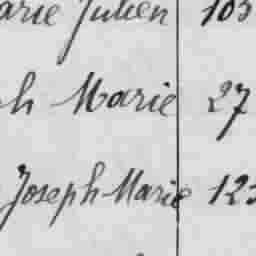 arie Julien 103
ph Marie 27
Joseph Marie 123